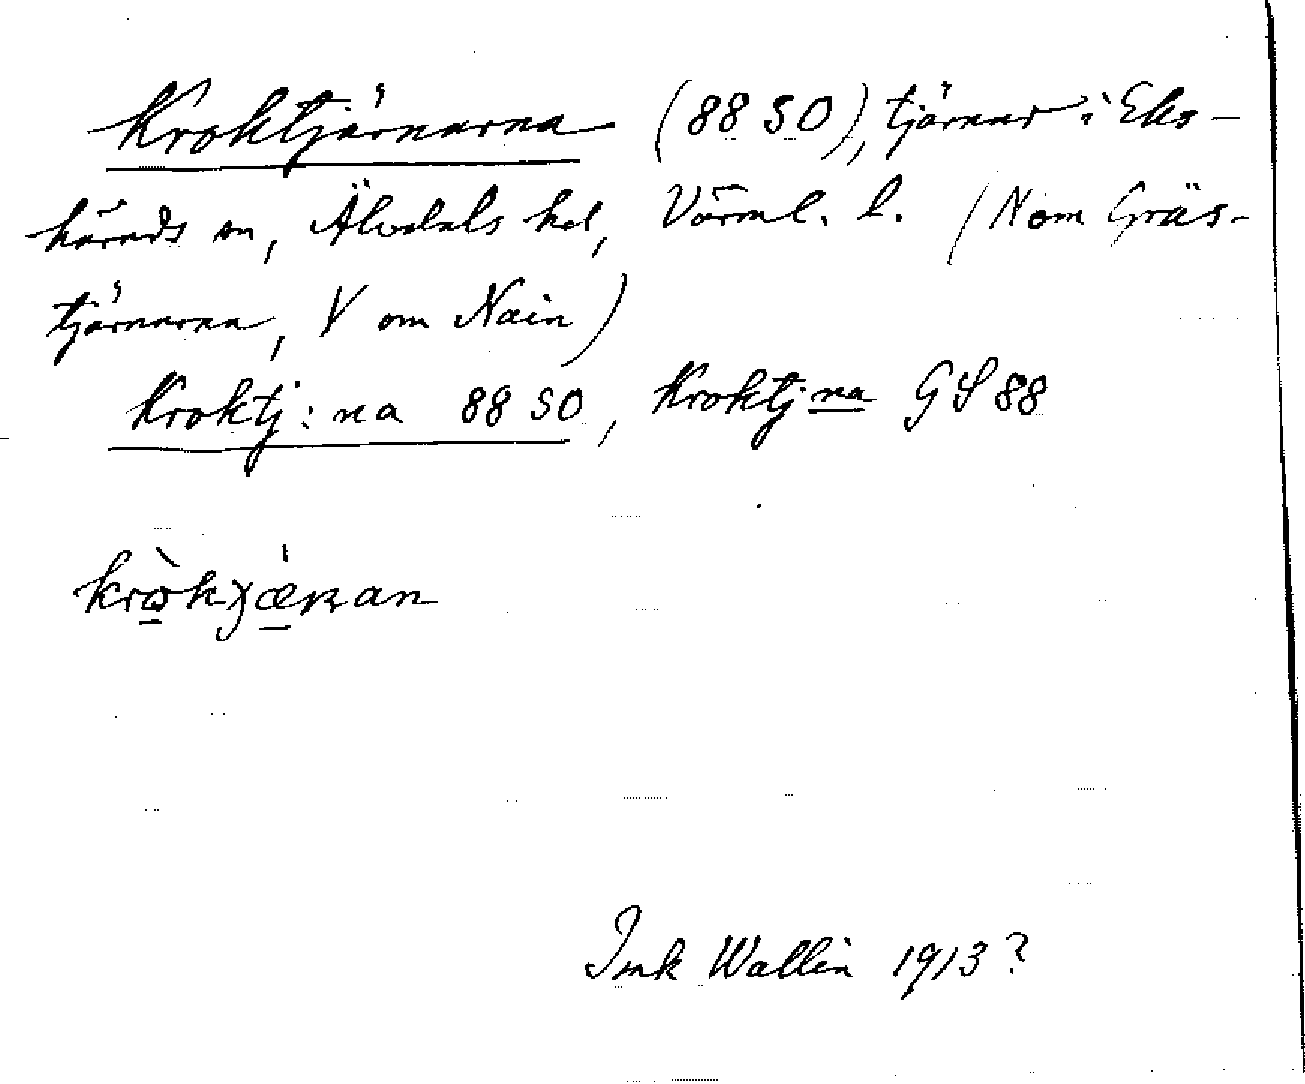 Kroktjärnarna (88 SO), tjärnar i Eks-
härads sn, Älvdals hd, Värml. l. (N om Gräs-
tjärnarna, V om Nain)
Kroktj:na 88 SO, Kroktj:na GS 88
Ink Wallin 1913?